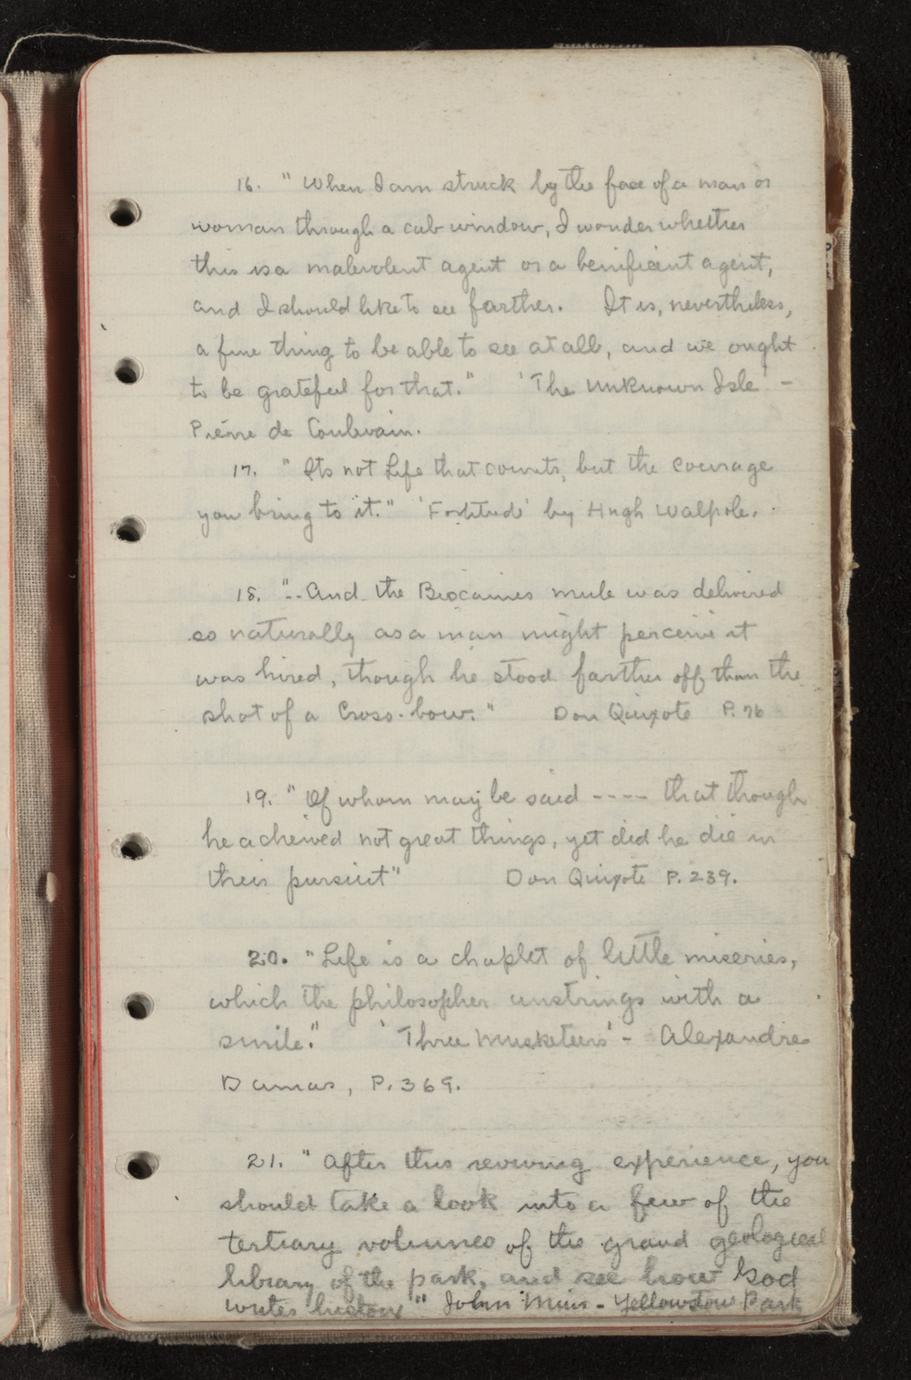 16. "When I am struck by the face of a man or
woman through a cab window, I wonder whether
this is a malevolent agent or a benificent agent,
and I should like to see farther. It is, nevertheless,
a fine thing to be able to see at all, and we ought
to be grateful for that." 'The Unknown Isle' -
Pierre de Coulevain.
17. "Its not Life that counts, but the courage
you bring to it." 'Fortitude' by Hugh Walpole.
18. "-- And the Biscaines mule was delivered
so naturally as a man might perceive it
was hired, though he stood farther off than the
shot of a Cross-bow." Don Quixote P. 76
19. "Of whom may be said ---- that though
he acheived not great things, yet did he die in
their pursuit" Don Quixote P. 239.
20. "Life is a chaplet of little miseries,
which the philosopher unstrings with a
smile." 'Three Musketeers' - Alexandre
Dumas, P. 369.
21. "After this reviving experience, you
should take a look into a few of the
tertiary volumes of the grand geological
library of the park, and see how God
writes history" John Muir - Yellowstone Park